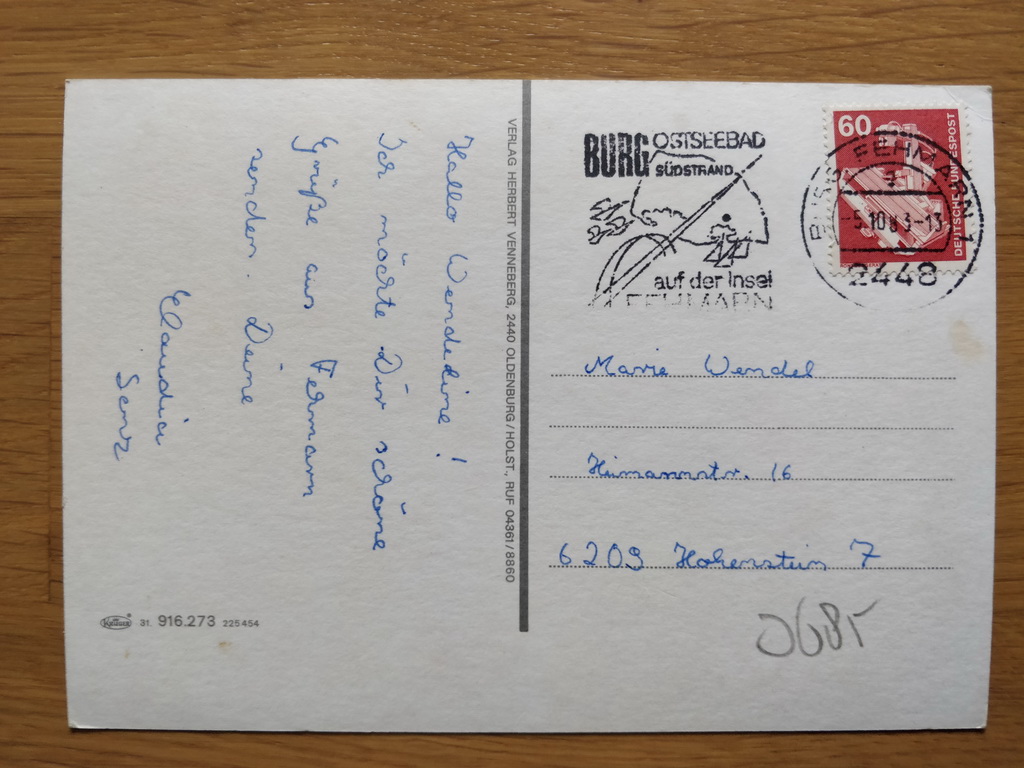 Hallo Wendeline!
Ich möchte Dir schöne
Grüße aus Fermarn
senden. Deine
Claudia
Senz
31. 916.273 225454
VERLAG HERBERT VENNEBERG, 2440 OLDENBURG/HOLST., RUF 04361/8860
BURG OSTSEEBAD
SÜDSTRAND
auf der Insel
FEHMARN
60
DEUTSCHE BUNDESPOST
BURG, FEHMARN 1
-5.10.83-13
2448
Marie Wendel
Heimannstr. 16
6209 Hohenstein 7